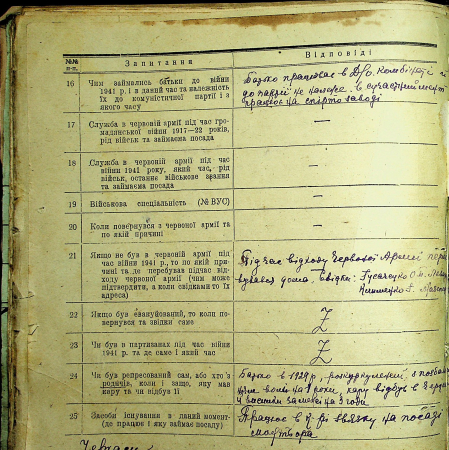 №№ п-п.
Запитання
Відповіді
16
Чим займались батьки до війни
1941 р. і в даний час та належність
їх до комуністичної партії і з
якого часу
Батько працював в
до партії не належе. в
працює на спирто заводі
17
Служба в червоній армії під час гро-
мадянської війни 1917—22 років,
рід військ та займаєма посада
—
18
Служба в червоній армії під час
війни 1941 року, який час, рід
військ, останнє військове звання
та займаєма посада
—
19
Військова спеціальність (№ ВУС)
—
20
Коли повернувся з червоної армії та
по якій причині
—
21
Якщо не був в червоній армії під
час війни 1941 р., то по якій при-
чині та де перебував підчас від-
ходу червоної армії (чим може
підтвердити, а коли свідками то їх
адреса)
Під час відходу Червоної Армії пере
бувався дома. свідки:
22
Якщо був евакуйований, то коли по-
вернувся та звідки саме
Z
23
Чи був в партизанах під час війни
1941 р. та де саме і який час
Z
24
Чи був репресований сам, або хто з
родичів, коли і защо, яку мав
кару та чи відбув її
Батько в 1929 р., розкуркулений, з позбав
волі на 3 роки, кару відбув в
на 3 годи.
25
Засоби існування в даний момент-
(де працює і яку займає посаду)
Працює в звязку на посаді
монтьора